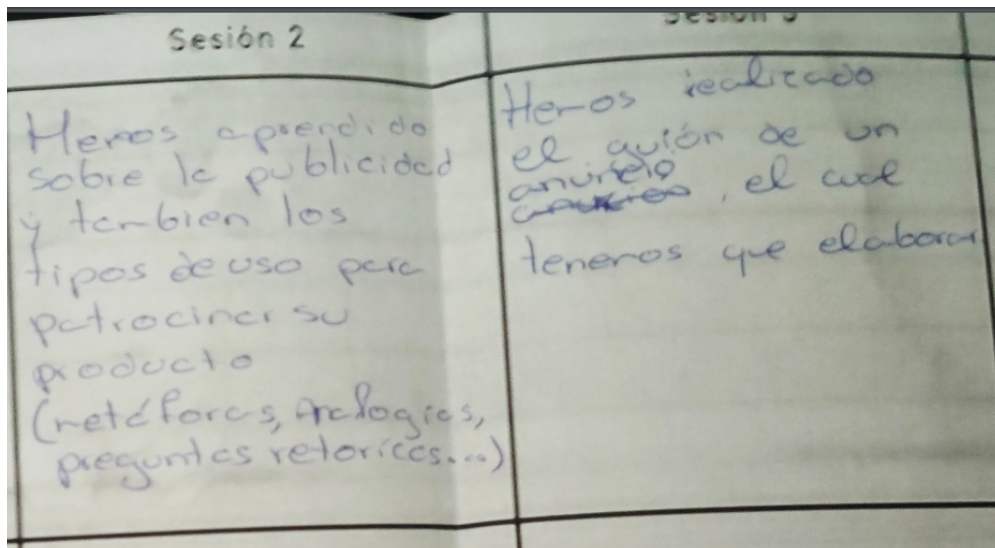 Sesión 2
Hemos aprendido
sobre la publicidad
y tambien los
tipos de uso para
patrocinar su
producto
(metáforas, Analogias,
preguntas retoricas...)
Sesión 3
Hemos realizado
el guión de un
anuncio
, el cual
tenemos que elaborar